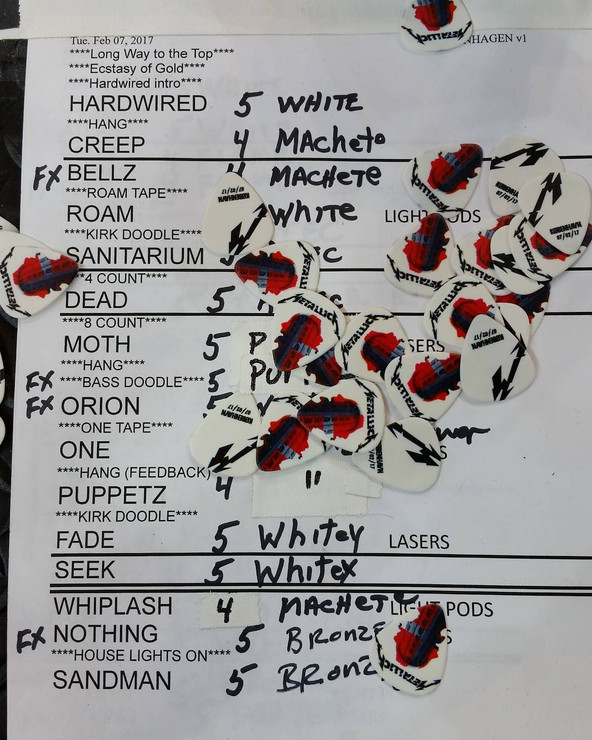 Tue. Feb 07, 2017 NHAGEN v1
****Long Way to the Top****
****Ecstasy of Gold****
****Hardwired intro****
HARDWIRED 5 WHITE
****HANG****
CREEP 4 MACHETO
FX BELLZ MACHETE
****ROAM TAPE****
ROAM WHITE
****KIRK DOODLE****
SANITARIUM
4 COUNT****
DEAD 5
****8 COUNT****
MOTH 5
****HANG****
FX ****BASS DOODLE**** 5
FX ORION
****ONE TAPE****
ONE
****HANG (FEEDBACK)
PUPPETZ 4 "
****KIRK DOODLE****
FADE 5 WHITEY LASERS
SEEK 5 WHITEX
WHIPLASH 4 MACHETE LIGHT PODS
FX NOTHING 5 BRONZE
****HOUSE LIGHTS ON****
SANDMAN 5 BRONZ
METALLICA
KOBENHAVN
07/02/17